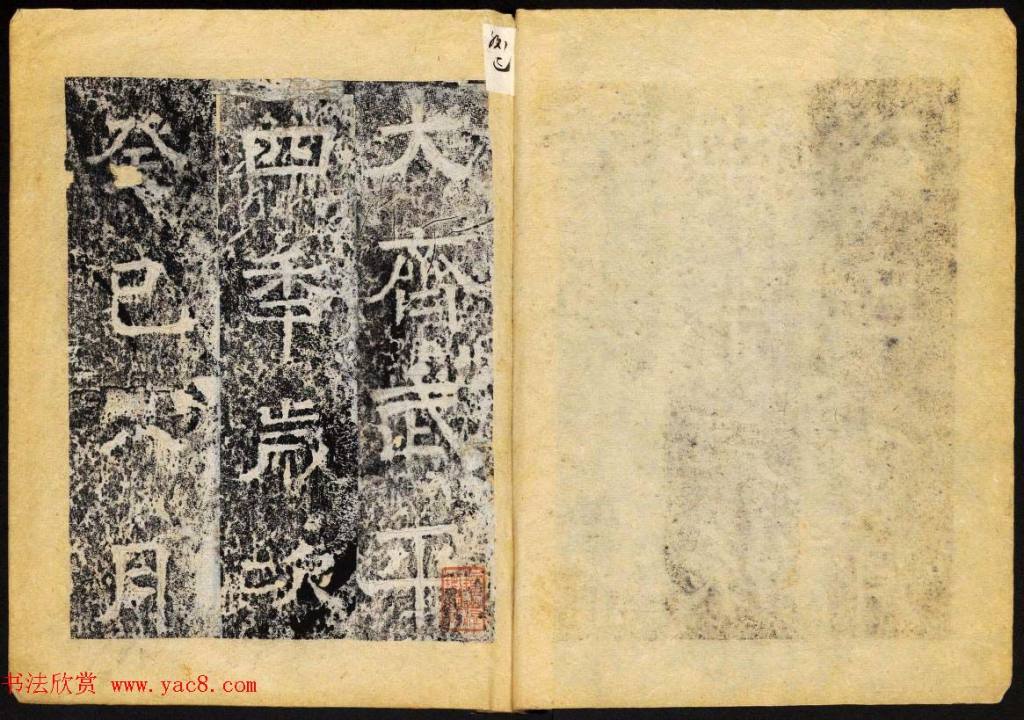 大齊武平
四年歲次
癸巳八月
书法欣赏 www.yac8.com